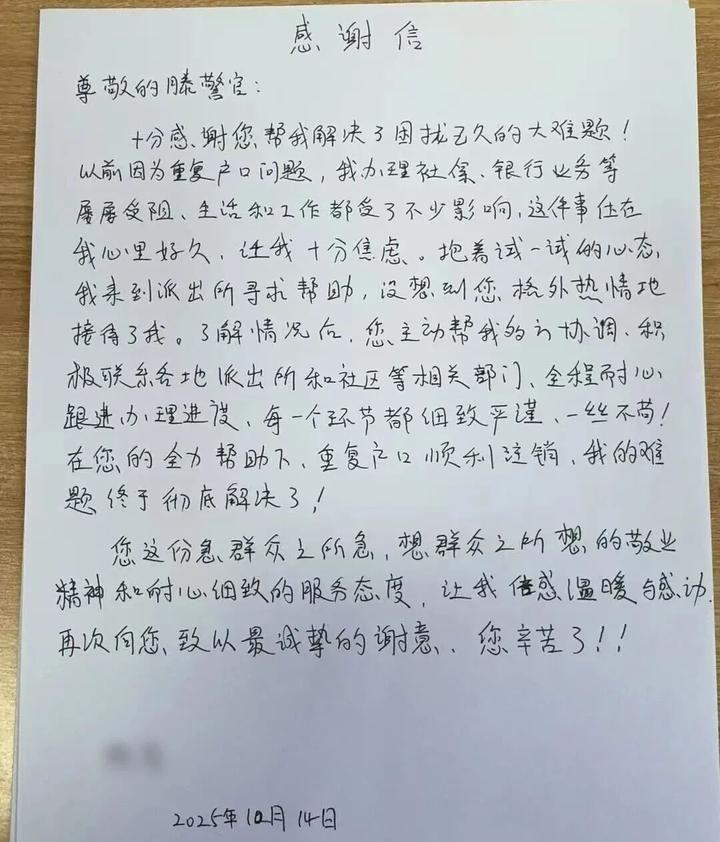 感谢信
尊敬的滕警官：
十分感谢您帮我解决了困扰已久的大难题！
以前因为重复户口问题，我办理社保、银行业务等
屡屡受阻、生活和工作都受了不少影响，这件事压在
我心里好久，让我十分焦虑。抱着试一试的心态，
我来到派出所寻求帮助，没想到您格外热情地
接待了我。了解情况后，您主动帮我的协调、积
极联系各地派出所和社区等相关部门、全程耐心
跟进办理进度、每一个环节都细致严谨、一丝不苟！
在您的全力帮助下、重复户口顺利注销、我的难
题终于彻底解决了！
您这份急群众之所急，想群众之所想的敬业
精神和耐心细致的服务态度，让我倍感温暖与感动.
再次向您致以最诚挚的谢意、您辛苦了！！
2025年12月14日